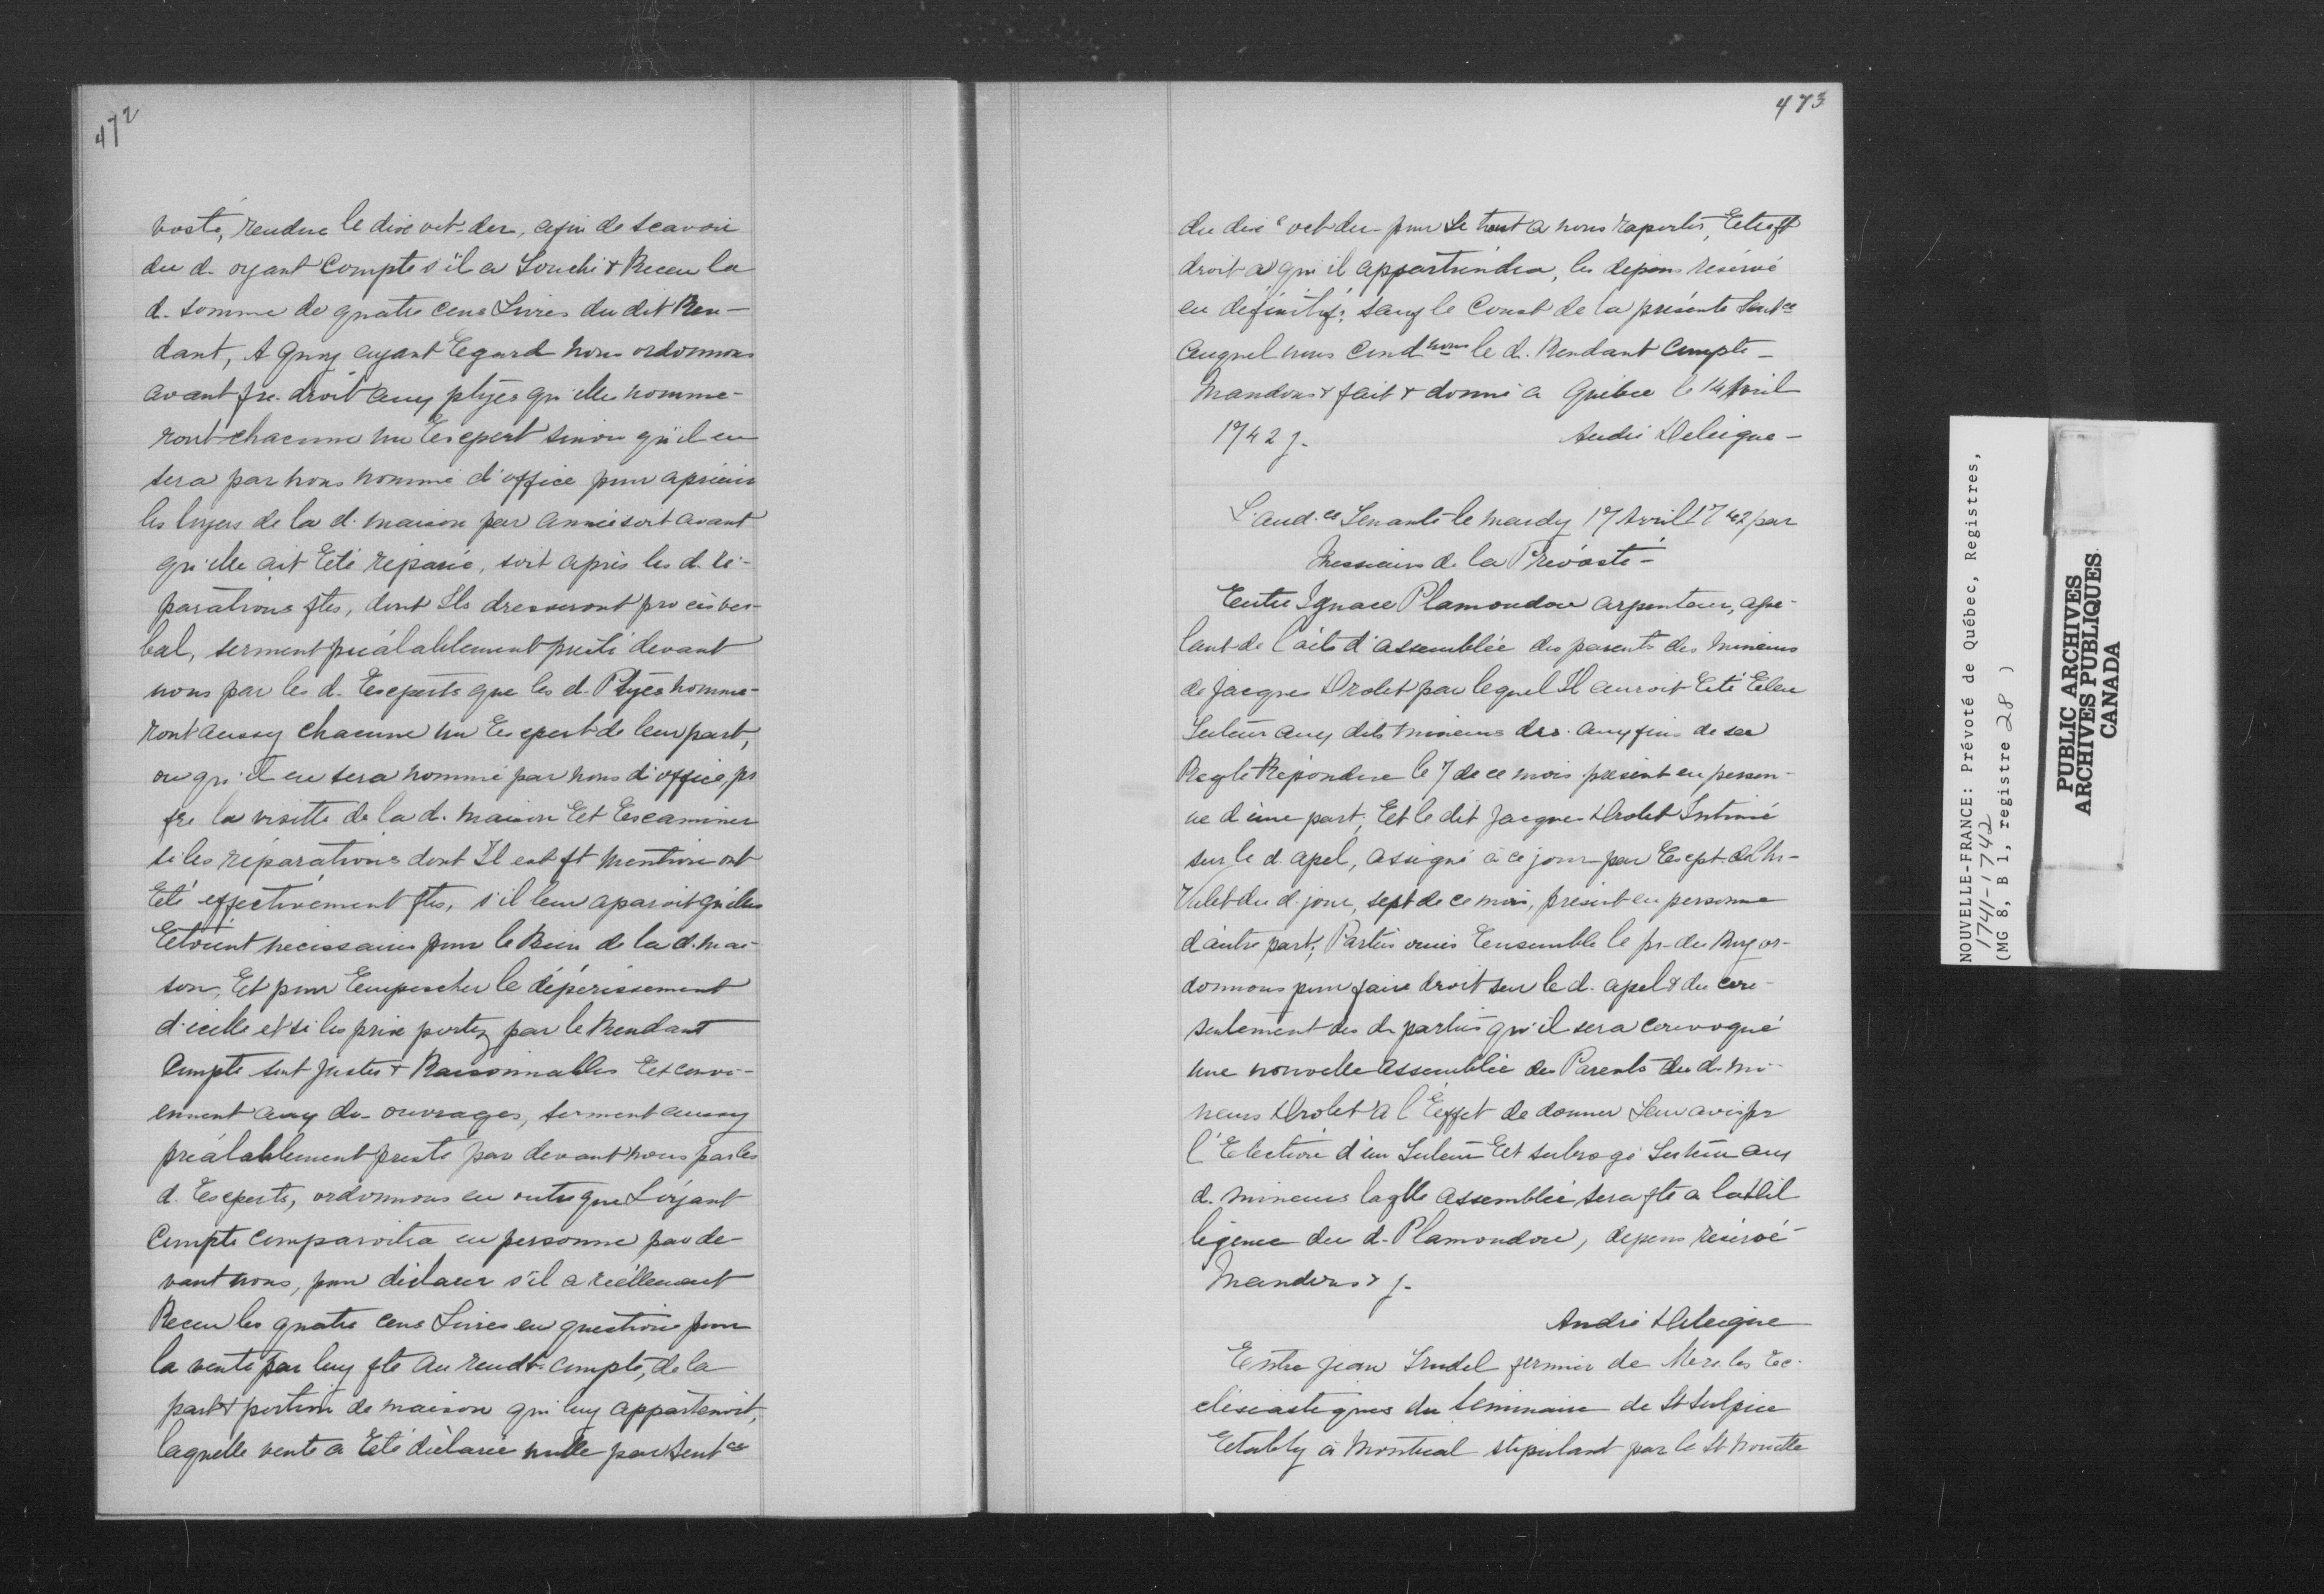 472
vosté, rendue le dix oct. der, afin de scavoir
du d. oyant Compte s'il a Touché & Receu la
d. somme de quatre cens Livres du dit Ren-
dant, A quoy ayant Egard nous ordonnons
avant fre. droit aux ptyes qu'elles nomme-
ront chacune un Expert sinon qu'il en
sera par nous nommé d'office pour aprécier
les loyers de la d. maison par année soit avant
qu'elle ait Eté réparée, soit après les d. ré-
parations ftes, dont Ils dresseront procès ver-
bal, serment préalablement presté devant
nous par les d. Experts que les d. Ptyes nomme-
ront aussy chacune un Expert de leur part,
ou qu'il en sera nommé par nous d'office, pr
fre la visitte de la d. maison Et Examiner
si les réparations dont Il est ft mention ont
Eté effectivement ftes, s'il leur aparoit qu'elles
Etoient necessaires pour le Bien de la d. mai-
son, Et pour Empescher le dépérissement
d'icelle et si les prix portez par le Rendant
Compte sont justes & Raisonnables Et convi-
ennent aux ds. ouvrages, serment aussy
préalablement presté par devant nous par les
d. Experts, ordonnons en outre que L'oyant
Compte comparoitra en personne par de-
vant nous, pour déclarer s'il a réellement
Receu les quatre cens Livres en question pour
la vente par luy fte au rendt. compte, de la
part & portion de maison qui luy appartenoit,
laquelle vente a Eté déclarée nulle par Sentce
473
du dixe oct. der pour Le tout a nous raporter, Etre ft
droit a qui il appartiendra, les dépens réservé
en définitif; sauf le Coust de la présente Sentce
auquel nous Condnons le d. Rendant Compte-
Mandons & fait & donné a Québec le 14 Avril
1742 ʃ. André Deleigne-
L'audce Tenante le mardy 17 Avril 1742 par
Messieurs de la Prévosté-
Entre Ignace Plamondon arpenteur, ape-
lant de l'acte d'assemblée des parents des mineurs
de Jacques Drolet par lequel Il auroit Eté Eleu
Tuteur aux dits mineurs dr. aux fins de sa
Reqte Répondue le 7 de ce mois présent en person-
ne d'une part, Et le dit Jacques Drolet Intimé
sur le d. apel, assigné à ce jour par Exept. de lhr
Valet du d. jour, sept de ce mois, présent en personne
d'autre part; Parties ouies Ensemble le pr. du Roy or-
donnons pour faire droit sur le d. apel & du con-
sentement des d. parties qu'il sera convoqué
une nouvelle assemblée des Parents des d. mi-
neurs Drolet a l'Effet de donner Leur avis pr
l'Election d'un Tuteur Et subrogé Tuteur aux
d. mineurs laqlle assemblée sera fte a la Dil
ligence du d. Plamondon, depens réservé
Mandons & ʃ.
André Deleigne
Entre Jean Trudel fermier de Mrs. les Ec-
clésiastiques du Séminaire de St Sulpice
Etably à Montreal stipulant par le Sr Nouette
NOUVELLE-FRANCE: Prévoté de Québec, Registres,
1741-1742
(MG 8, B 1, registre 28 )
PUBLIC ARCHIVES
ARCHIVES PUBLIQUES
CANADA